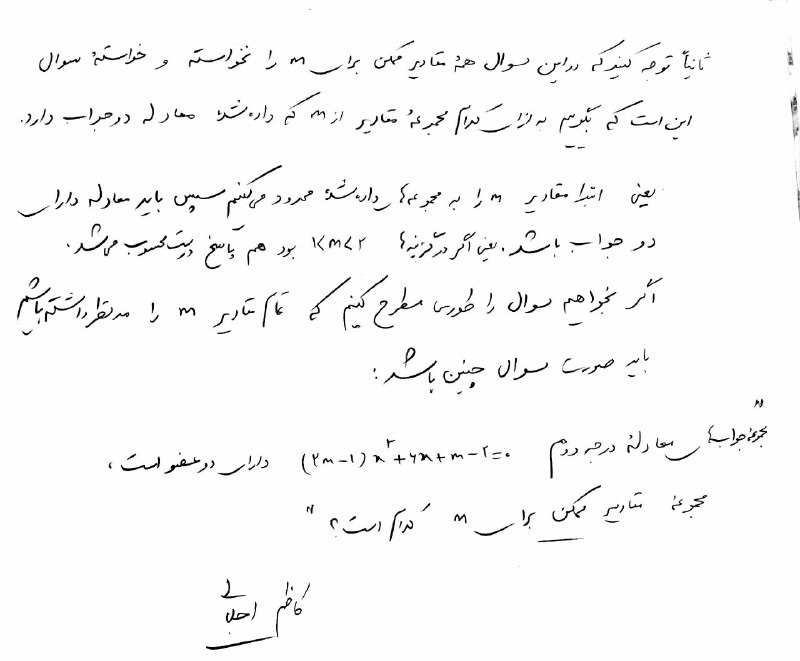 ثانیاً توجه کنید که در این سوال همهٔ مقادیر ممکن برای m را نخواسته و خواستهٔ سوال
این است که بگوییم به ازای کدام مجموعهٔ مقادیر از m که داده شده معادله دو جواب دارد.
یعنی ابتدا مقادیر m را به مجموعه‌های داده شده محدود می‌کنیم سپس باید معادله دارای
دو جواب باشد. یعنی اگر در گزینه‌ها ۱<m<۲ بود هم پاسخ درست محسوب می‌شد.
اگر بخواهیم سوال را طوری مطرح کنیم که تمام مقادیر m را مدنظر داشته باشیم
باید صورت سوال چنین باشد:
"مجموعهٔ جواب‌های معادلهٔ درجه دوم (۲m-۱)x²+۶x+m-۲=۰ دارای دو عضو است،
مجموعهٔ مقادیر ممکن برای m کدام است؟"
کاظم اجلالی